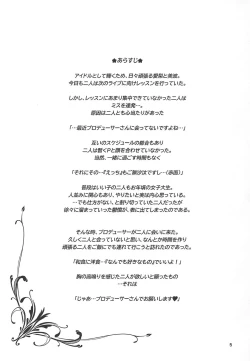 ★あらすじ★
アイドルとして輝くため、日々頑張る愛梨と美波。
今日も二人は次のライブに向けレッスンを行っていた。
しかし、レッスンにあまり集中できていなかった二人は
ミスを連発…。
原因は二人とも心当たりがあった
「…最近プロデューサーさんに会ってないですよね…」
互いのスケジュールの都合もあり
二人は暫くPと顔を合わせていなかった。
当然、一緒に過ごす時間もなく
「それにその…『えっち』もご無沙汰ですし…(赤面)」
普段はいい子の二人もお年頃の女子大生。
人並みに興味もあり、やりたいと実は内心思っている。
…でも仕方がない、と割り切っていた二人だったが
徐々に溜まっていった鬱憤が、表に出てしまったのである。
そんな時、プロデューサーが二人に会いにきた。
久しく二人と会っていないと思い、なんとか時間を作り
頑張る二人をご飯でもと連れて行こうと訪れたのであった。
「和食に洋食…『なんでも好きなもの』でいいよ!」
胸の高鳴りを感じた二人が欲しいと願ったもの
…それは
「じゃあ…プロデューサーさんでお願いします♥」